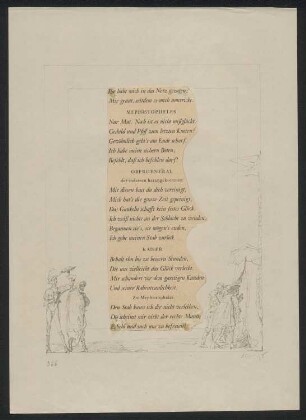 Sie habe mich in das Netz gezogen,
Mir graut, seitdem es mich umstrickt.
MEPHISTOPHELES
Nur Mut. Noch ist es nicht mißglückt.
Geduld und Pfiff zum letzten Knoten!
Gewöhnlich geht's am Ende scharf.
Ich habe meine sichern Boten,
Befehlt, daß ich befehlen darf!
OBERGENERAL
der indessen herangekommen
Mit diesen hast du dich vereinigt,
Mich hat's die ganze Zeit gepeinigt,
Das Gaukeln schafft kein festes Glück.
Ich weiß nichts an der Schlacht zu wenden,
Begannen sie's, sie mögen's enden,
Ich gebe meinen Stab zurück.
KAISER
Behalt ihn bis zu bessern Stunden,
Die uns vielleicht das Glück verleiht.
Mir schaudert vor dem garstigen Kunden
Und seiner Rabentraulichkeit.
Zu Mephistopheles
Den Stab kann ich dir nicht verleihen,
Du scheinst mir nicht der rechte Mann,
Befiehl und such uns zu befreien!